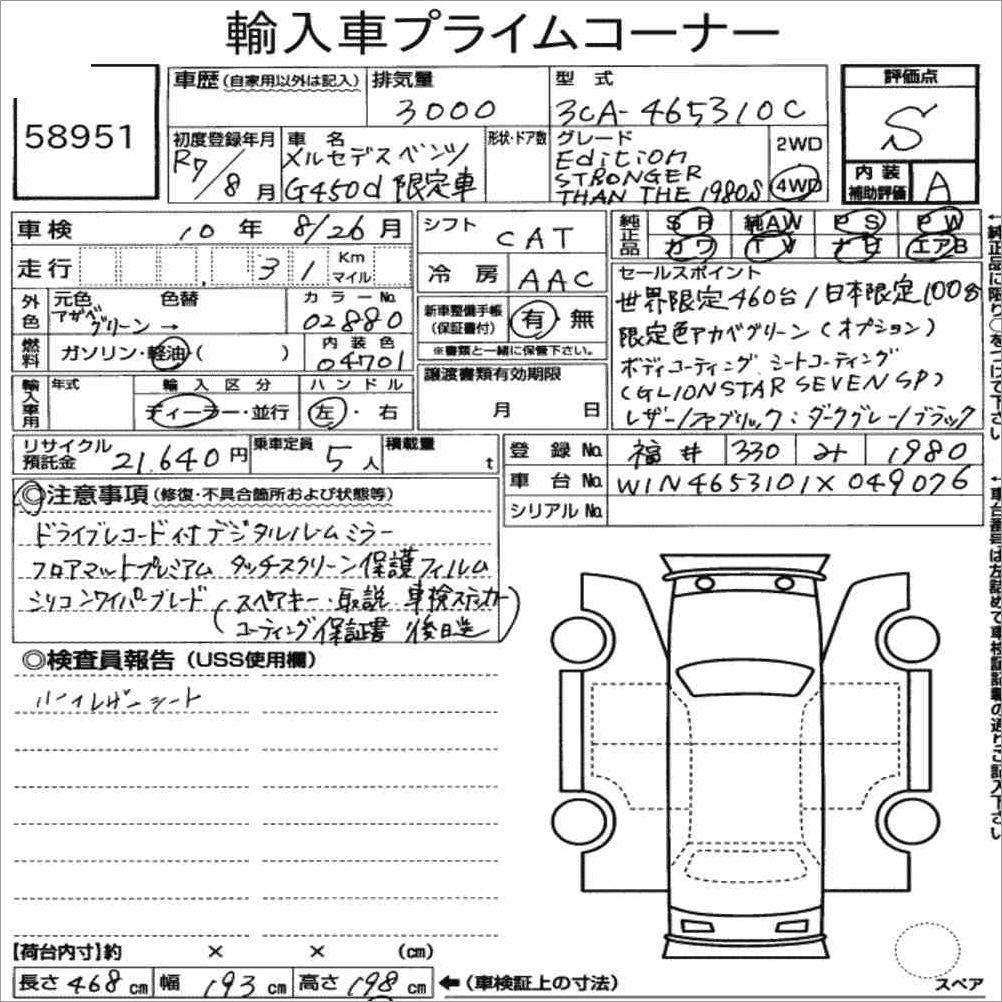 輸入車プライムコーナー
58951
車歴(自家用以外は記入)
排気量
3000
型式
3CA-465310C
評価点
S
初度登録年月
R7/8月
車名
メルセデスベンツ
G450d 限定車
形状・ドア数
グレード
Edition
STRONGER
THAN THE 1980s
2WD
4WD
内装
補助評価
A
車検 10年 8/26月
シフト CAT
純正品
SR 純AW PS PW
カワ TV ナビ エアB
走行 31 Km マイル
冷房 AAC
セールスポイント
世界限定460台/日本限定100台
限定色アカベグリーン(オプション)
ボディコーティング シートコーティング
(GLIONSTAR SEVEN SP)
レザー/ファブリック:ダークグレー/ブラック
外色
元色 色替
アガベグリーン →
カラーNo.
02880
新車整備手帳
(保証書付)
有・無
※書類と一緒に保管下さい。
燃料
ガソリン・軽油・( )
内装色
04701
輸入車用
年式
輸入区分
ディーラー・並行
ハンドル
左・右
譲渡書類有効期限
月 日
リサイクル
預託金 21.640円
乗車定員 5人
積載量 t
登録No. 福井 330 み 1980
車台No. W1N4653101X049076
シリアルNo.
◎注意事項(修復・不具合箇所および状態等)
ドライブレコード付デジタルルームミラー
フロアマットプレミアム タッチスクリーン保護フィルム
シリコンワイパーブレード (スペアキー・取説 車検ステッカー
コーティング保証書 後日送)
◎検査員報告(USS使用欄)
ハーフレザーシート
←純正品に限り○をつけて下さい
←車台番号は左詰めで車検証記載の通りご記入下さい
【荷台内寸】約 × × (cm)
長さ468cm 幅193cm 高さ198cm ←(車検証上の寸法)
スペア